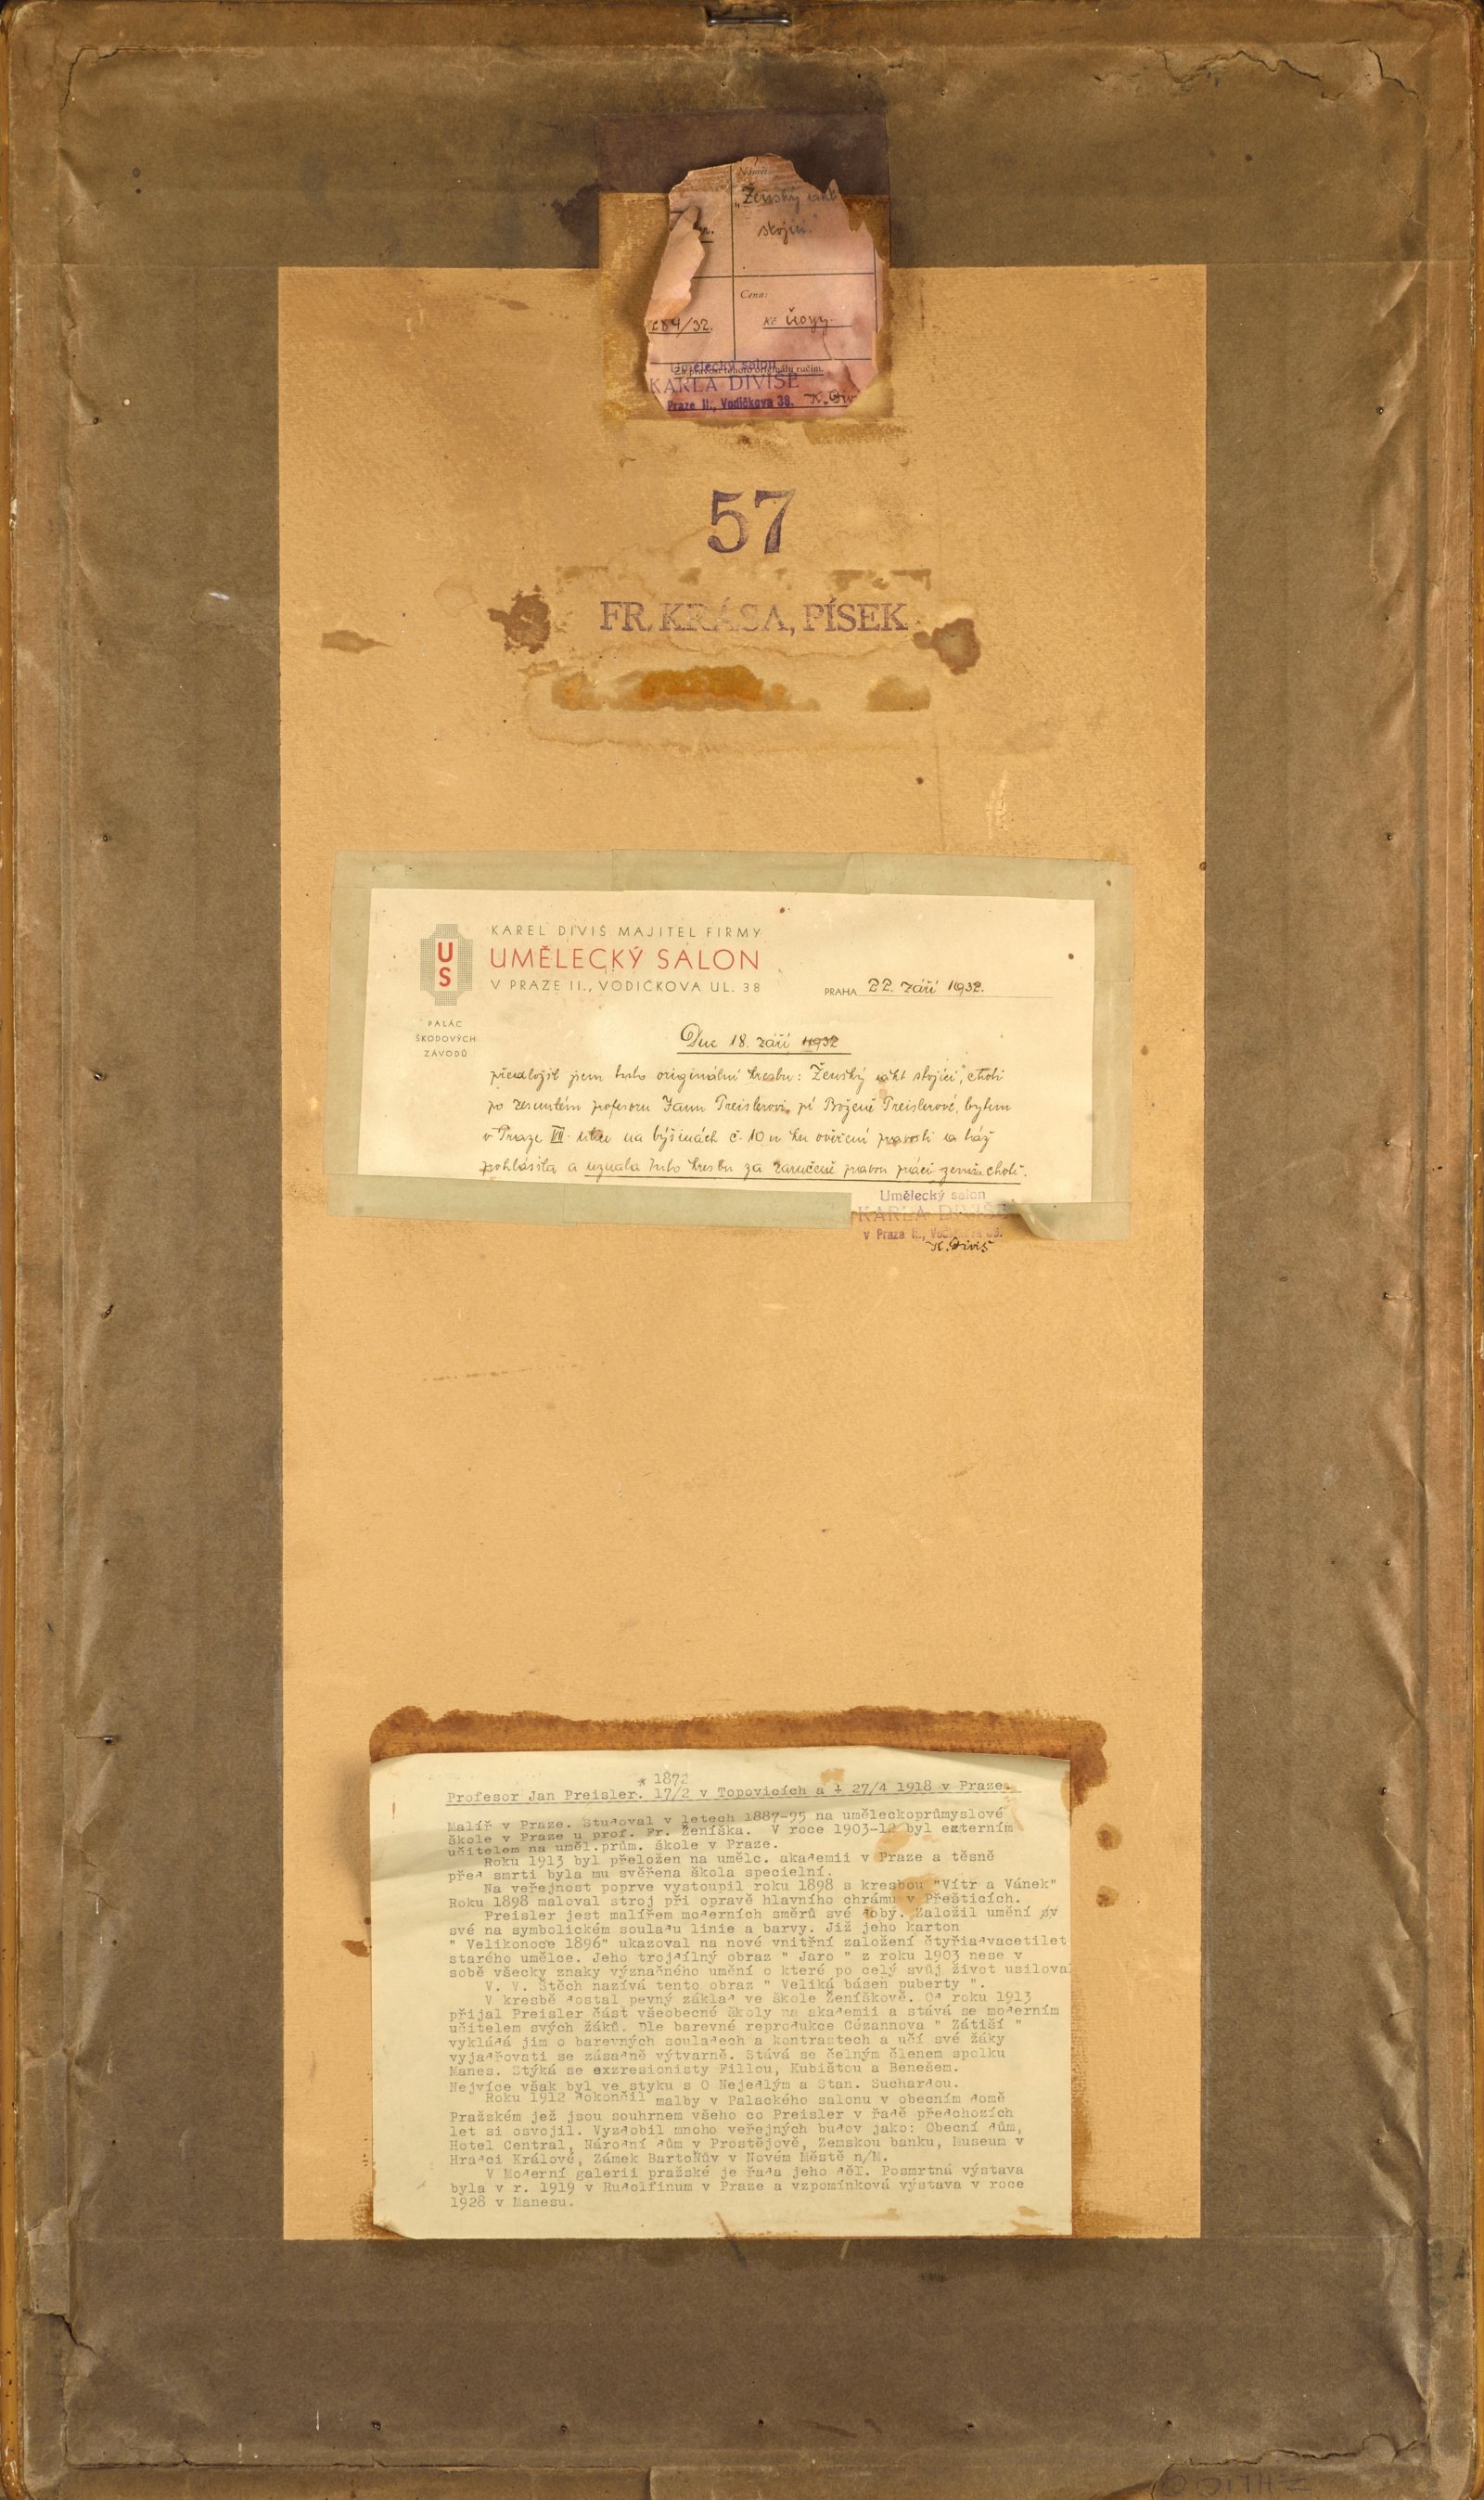 Námět:
"Ženský akt
stojící."
Cena:
84/32. Kč
Za pravost tohoto originálu ručím.
Umělecký salon
KARLA DIVIŠE
Praze II., Vodičkova 38. K. Div
57
FR. KRÁSA, PÍSEK
US
KAREL DIVIŠ MAJITEL FIRMY
UMĚLECKÝ SALON
V PRAZE II., VODIČKOVA UL. 38
PRAHA 22. září 1932.
PALÁC
ŠKODOVÝCH
ZÁVODŮ
Dne 18. září 1932
předložil jsem tuto originální kresbu: Ženský akt stojící", choti
po zesnulém profesoru Janu Preislerovi, pí Boženě Preislerové, bytem
v Praze VII. na výšinách č. 10 ku ověření pravosti a táž
pohlásila a uznala tuto kresbu za zaručeně pravou práci chotě.
Umělecký salon
KARLA DIVIŠE
v Praze II., Vodičkova 38.
K. Diviš
* 1872
Profesor Jan Preisler. 17/2 v Topovicích a + 27/4 1918 v Praze.
Malíř v Praze. Studoval v letech 1887-95 na uměleckoprůmyslové
škole v Praze u prof. Fr. Ženíška. V roce 1903-12 byl externím
učitelem na uměl.prům. škole v Praze.
Roku 1913 byl přeložen na umělc. akademii v Praze a těsně
před smrti byla mu svěřena škola specielní.
Na veřejnost poprve vystoupil roku 1898 s kresbou "Vítr a Vánek"
Roku 1898 maloval stroj při opravě hlavního chrámu v Přešticích.
Preisler jest malířem moderních směrů své doby. Založil umění
své na symbolickém souladu linie a barvy. Již jeho karton
" Velikonoce 1896" ukazoval na nové vnitřní založení čtyřiadvacetilet
starého umělce. Jeho trojdílný obraz " Jaro " z roku 1903 nese v
sobě všecky znaky význačného umění o které po celý svůj život usiloval
V. V. Štěch nazívá tento obraz " Veliká báseň puberty ".
V kresbě dostal pevný základ ve škole Ženíškově. Od roku 1913
přijal Preisler část všeobecné školy na akademii a stává se moderním
učitelem svých žáků. Dle barevné reprodukce Cézannova " Zátiší "
vykládá jim o barevných souladech a kontrastech a učí své žáky
vyjadřovati se zásadně výtvarně. Stává se čelným členem spolku
Manes. Stýká se exzresionisty Fillou, Kubištou a Benešem.
Nejvíce však byl ve styku s O Nejedlým a Stan. Suchardou.
Roku 1912 dokončil malby v Palackého salonu v obecním domě
Pražském jež jsou souhrnem všeho co Preisler v řadě předchozích
let si osvojil. Vyzdobil mnoho veřejných budov jako: Obecní dům,
Hotel Central, Národní dům v Prostějově, Zemskou banku, Museum v
Hradci Králové, Zámek Bartoňův v Novém Městě n/M.
V Moderní galerii pražské je řada jeho děl. Posmrtná výstava
byla v r. 1919 v Rudolfinum v Praze a vzpomínková výstava v roce
1928 v Manesu.